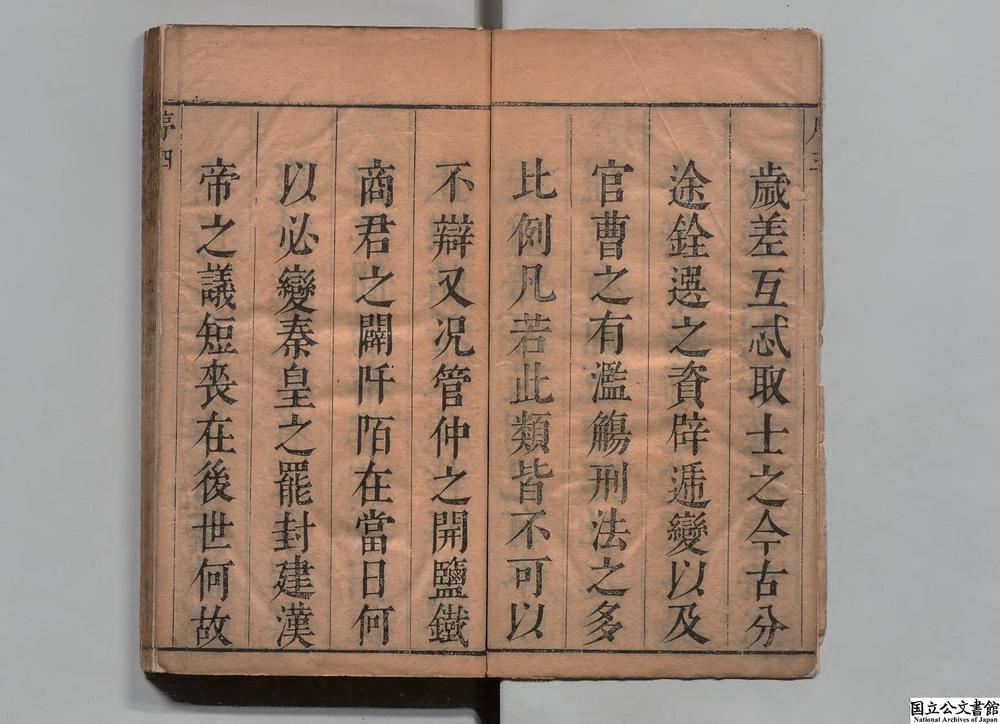 歲差互忒取士之今古分
途銓選之資辟遞變以及
官曹之有濫觴刑法之多
比例凡若此類皆不可以
不辯又况管仲之開鹽鐵
商君之闢阡陌在當日何
以必變秦皇之罷封建漢
帝之議短喪在後世何故
序四
国立公文書館
National Archives of Japan